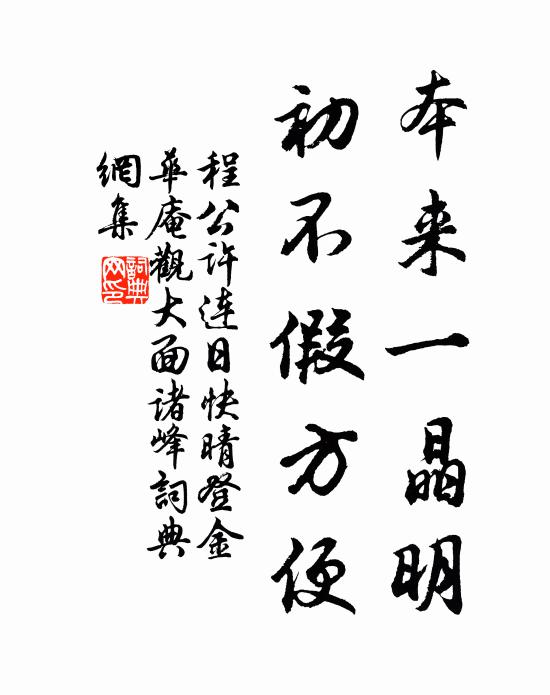 本来一晶明
初不假方便
程公许连日快晴登金
華庵觀大面诸峰詞典
網集
詞典網印